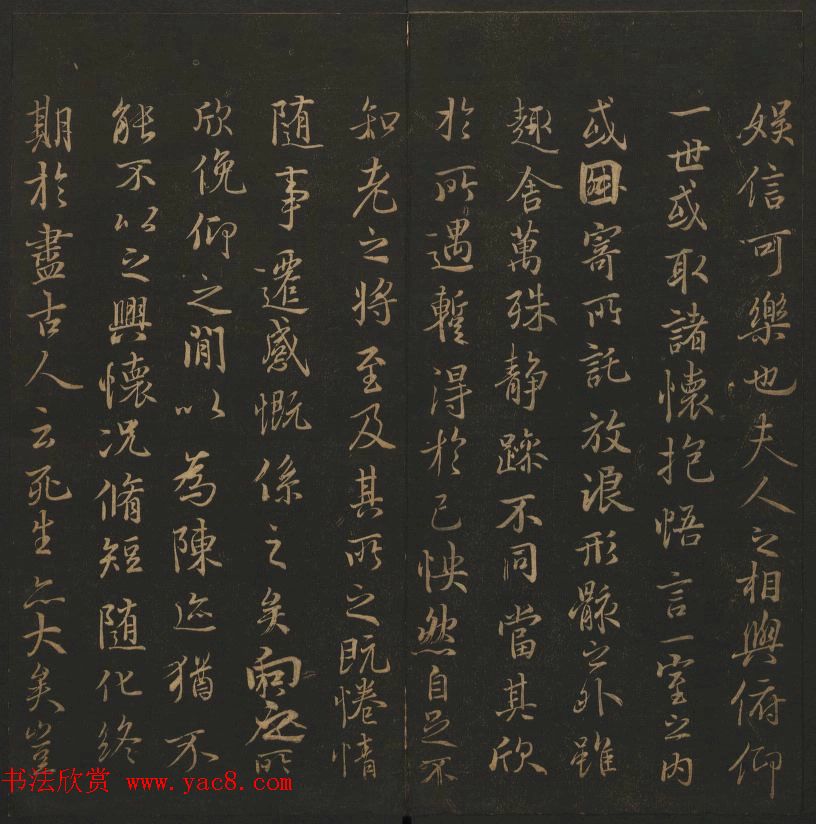 娱信可樂也夫人之相與俯仰
一世或取諸懷抱悟言一室之内
或因寄所託放浪形骸之外雖
趣舍萬殊静躁不同當其欣
於所遇蹔得於己怏然自足不
知老之將至及其所之既惓情
随事遷感慨係之矣向之所
欣俛仰之閒以為陳迹猶不
能不以之興懷况脩短随化終
期於盡古人云死生亦大矣豈
书法欣赏 www.yac8.com